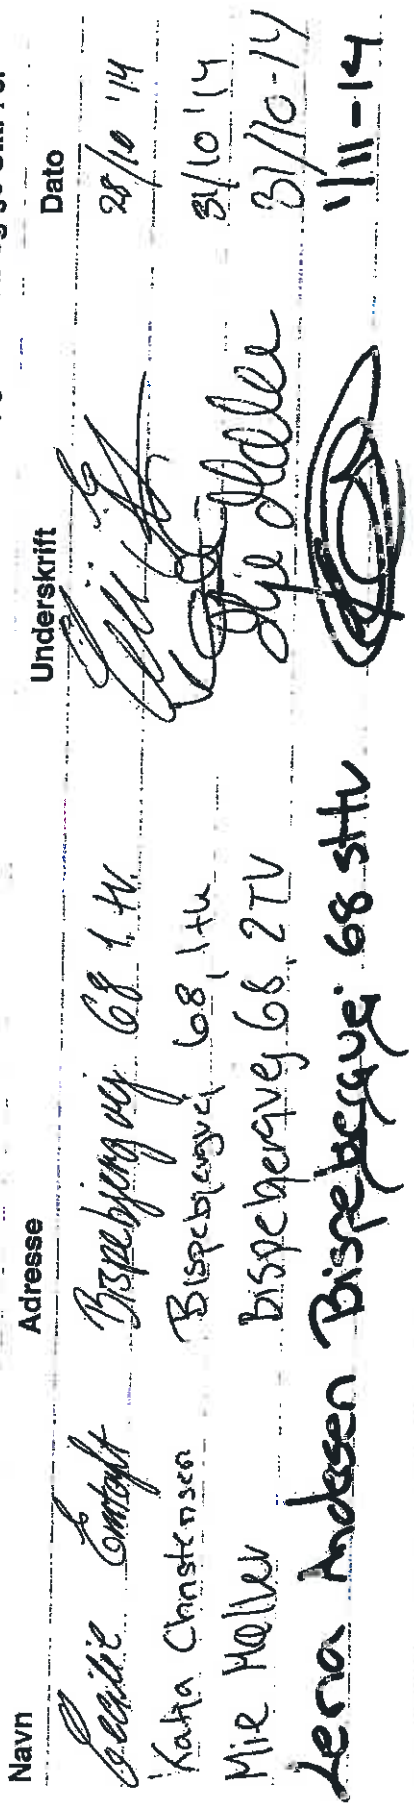 Navn Adresse Underskrift Dato
Cecilie Bispebjergvej 68 1. tv. 28/10 '14
Katja Christensen Bispebjergvej 68, 1th 31/10 '14
Mie Møller Bispebjergvej 68, 2TV 31/10-14
Lena Andersen Bispebjergvej 68 sttv 1/11-14